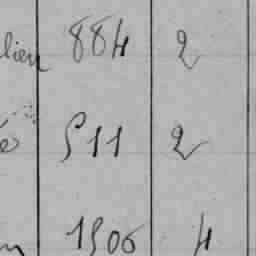 lien 884 2
511 2
1506 4